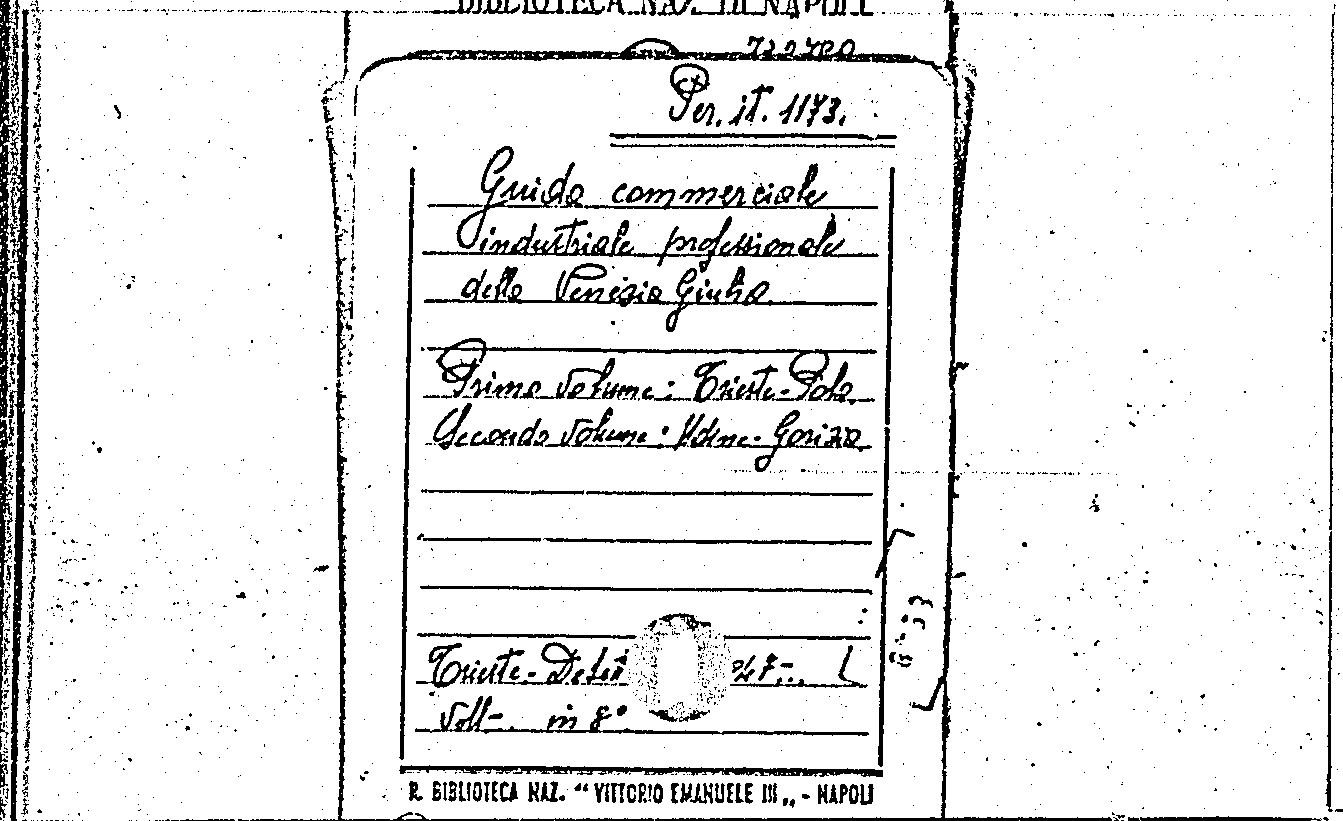 BIBLIOTECA NAZ. DI NAPOLI
Per. it. 1173.
Guida commerciale
industriale professionale
della Venezia Giulia
Primo volume: Trieste-Pola
Secondo volume: Udine-Gorizia
Trieste-
voll-. in 8°
R. BIBLIOTECA NAZ. “ VITTORIO EMANUELE III „ - NAPOLI